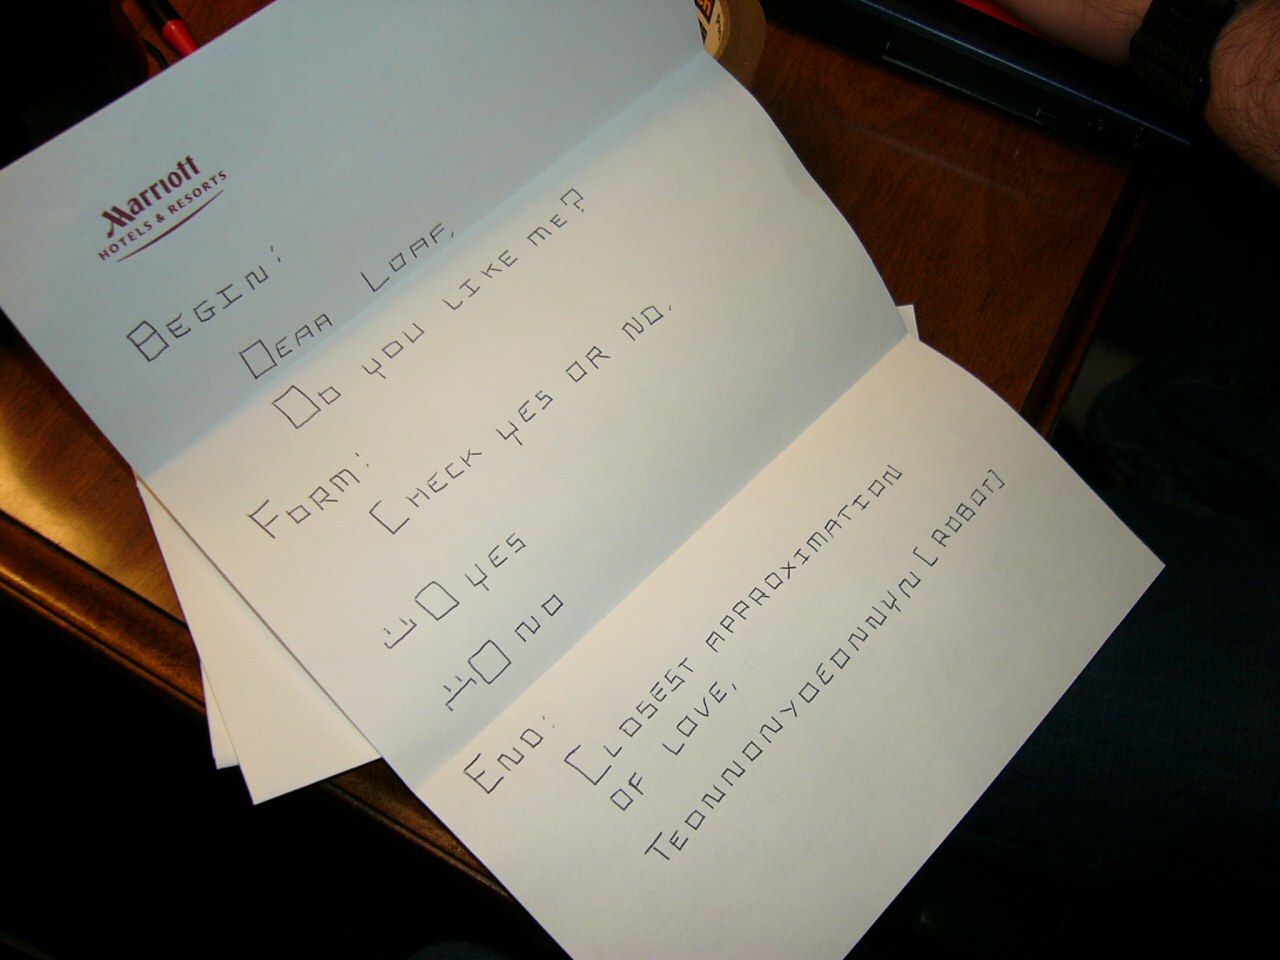 Marriott
HOTELS & RESORTS
BEGIN:
DEAR LOAF,
DO YOU LIKE ME?
FORM:
CHECK YES OR NO.
1: □ YES
1: □ NO
END:
CLOSEST APPROXIMATION
OF LOVE,
TEONNONYOEONNYN [ROBOT]